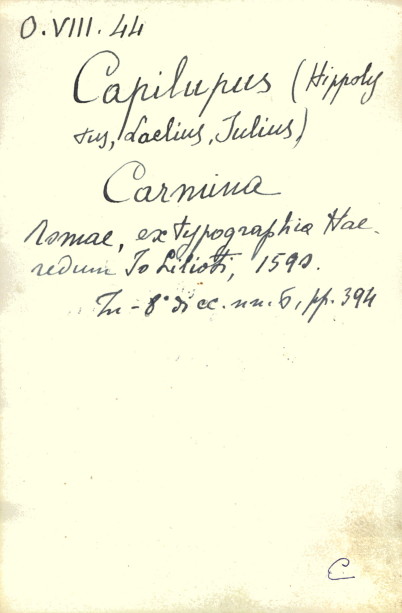 O.VIII.44
Capilupus (Hippoly
tus, Laelius, Julius)
Carmina
Romae, ex typographia Hae-
redum Jo Lilioti, 1590.
In-8° di cc. nn. 6, pp. 394
C.